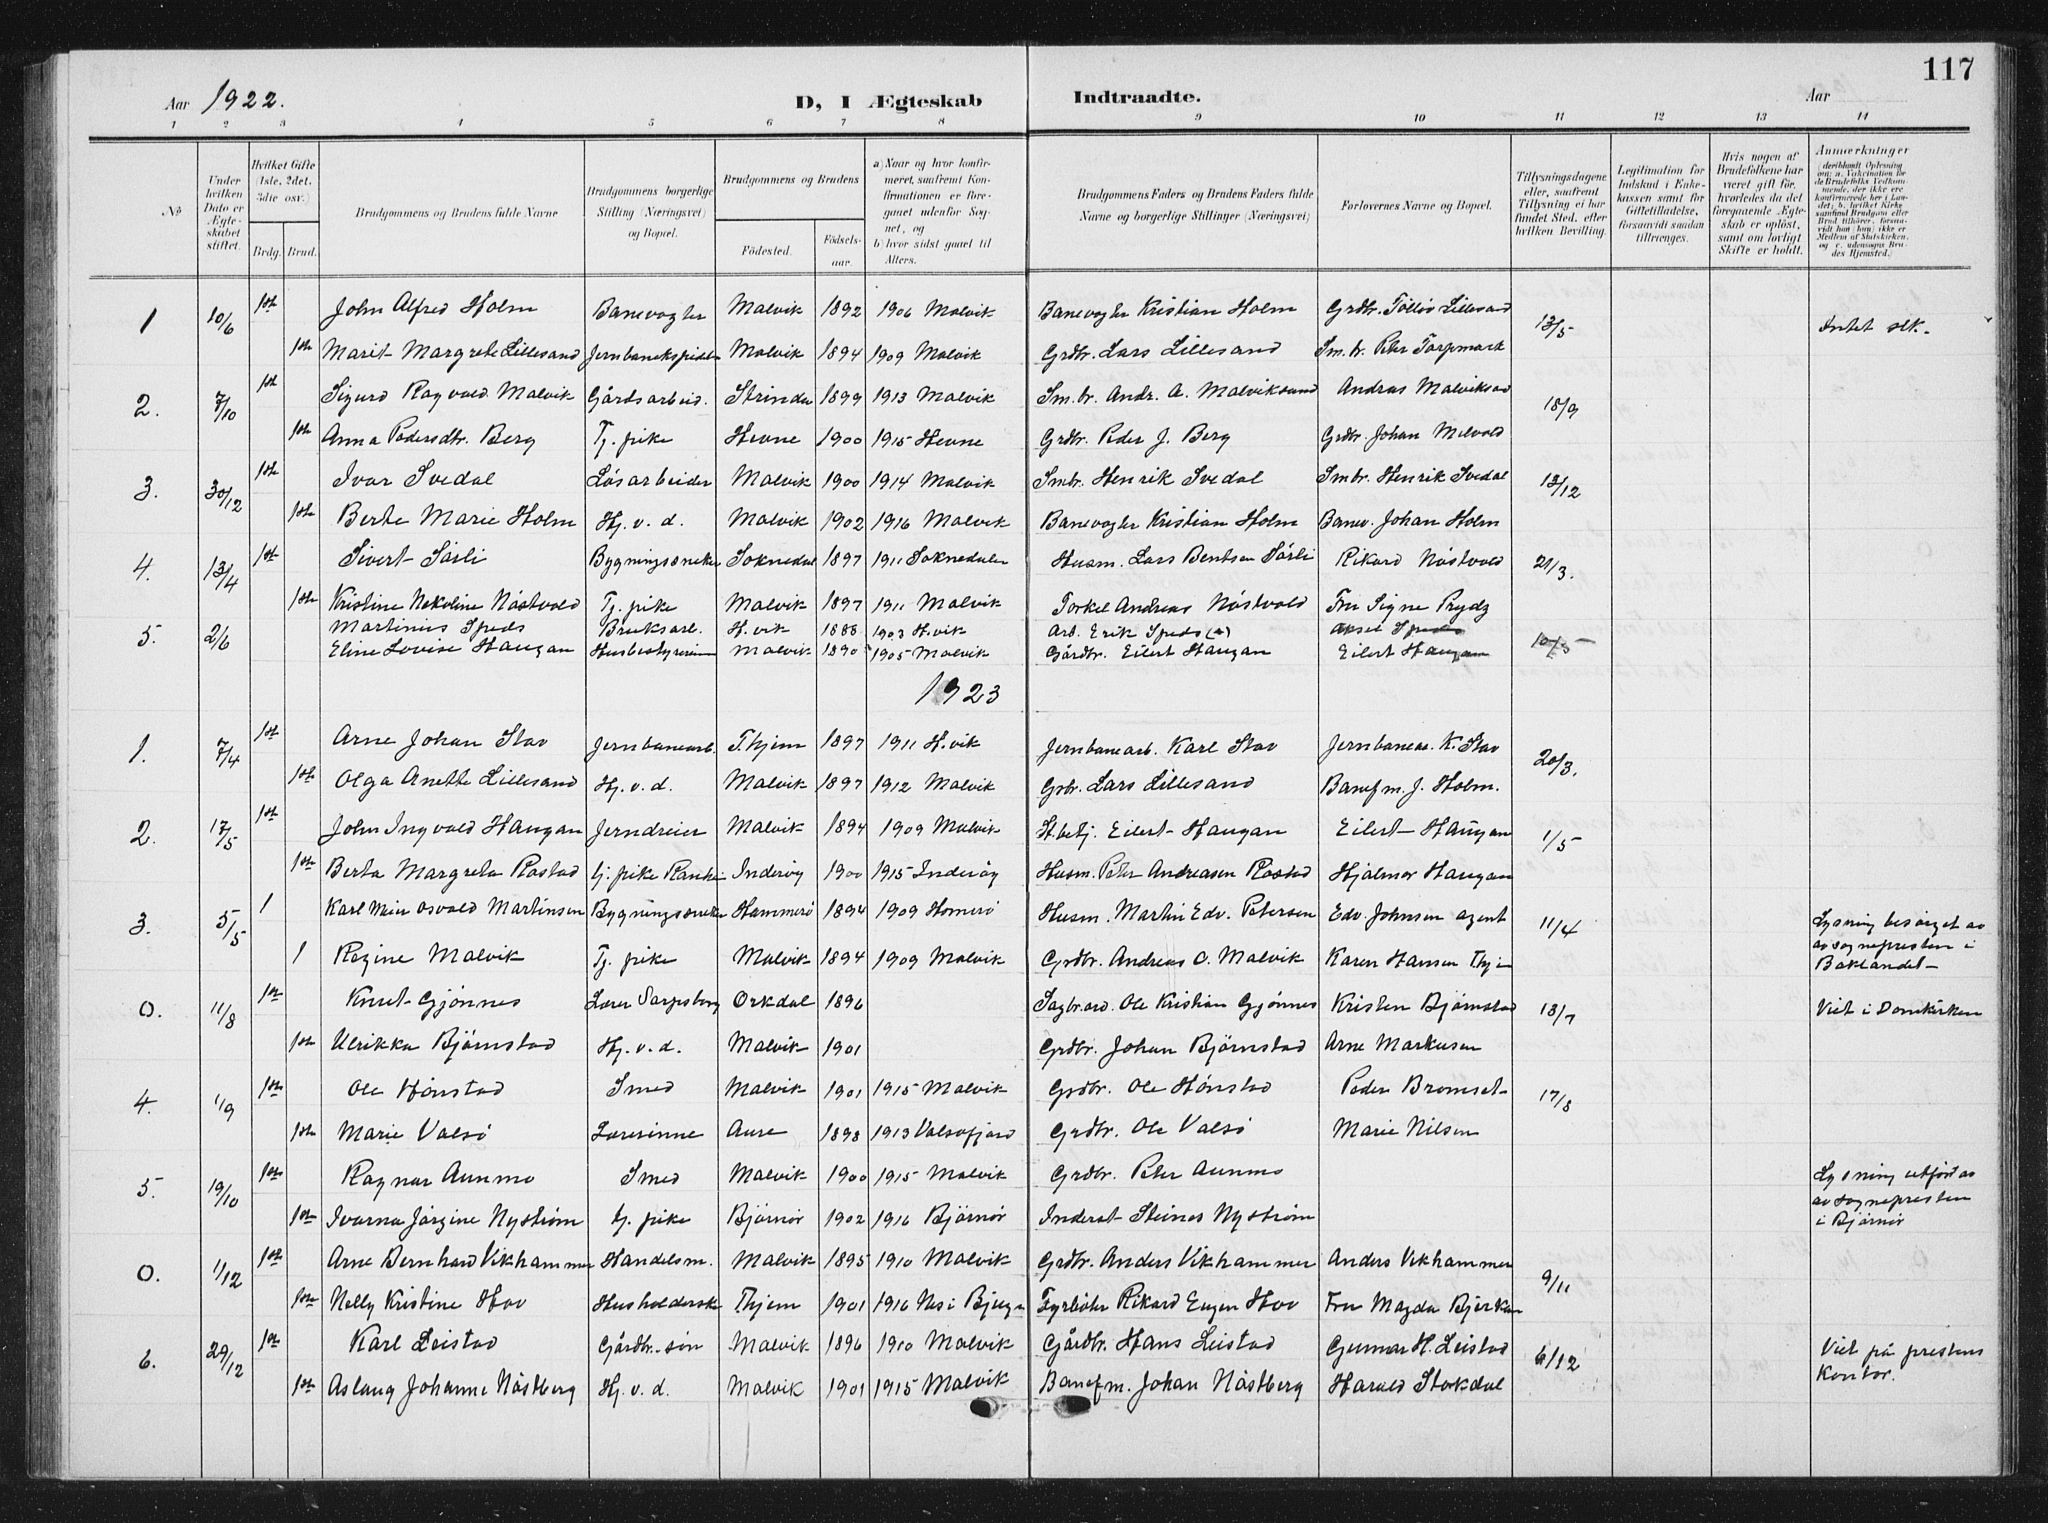 117
Aar 1922. D, I Ægteskab Indtraadte. Aar
1 2 3 4 5 6 7 8 9 10 11 12 13 14
No
Under hvilken Dato er Ægteskabet stiftet.
Hvilket Gifte (1ste, 2det, 3die osv.)
Brdg. Brud.
Brudgommens og Brudens fulde Navne
Brudgommens borgerlige Stilling (Næringsvei) og Bopæl.
Brudgommens og Brudens
Födested. Födselsaar.
a) Naar og hvor konfirmeret, saafremt Konfirmationen er foregaaet udenfor Sognet, og
b) hvor sidst gaaet til Alters.
Brudgommens Faders og Brudens Faders fulde Navne og borgerlige Stillinger (Næringsvei)
Forlovernes Navne og Bopæl.
Tillysningsdagene eller, saafremt Tillysning ei har fundet Sted, efter hvilken Bevilling.
Legitimation for Indskud i Enkekassen samt for Giftetilladelse, forsaavidt saadan tiltrænges.
Hvis nogen af Brudefolkene har været gift før, hvorledes da det foregaaende Ægteskab er oplöst, samt om lovligt Skifte er holdt.
Anmærkninger
1 10/6 1ste John Alfred Holm Banevogter Malvik 1892 1906 Malvik Banevogter Kristian Holm Grdbr. Lillesand 13/5 Intet slk.
1ste Marit Margrete Lillesand Malvik 1894 1909 Malvik Grdbr. Lars Lillesand Sm.br. Peter Torpmark
2. 7/10 1ste Sigurd Ragvald Malvik Gårdsarbeid. Strinda 1899 1913 Malvik Sm.br. Andr. A. Malviksand Andras Malviksand 18/9
1ste Anna Pedersdtr. Berg Tj. pike Hevne 1900 1915 Hevne Grdbr. Peder J. Berg Grdbr. Johan Melvold
3. 30/12 1ste Ivar Svedal Løsarbeider Malvik 1900 1914 Malvik Smbr. Henrik Svedal Smbr. Henrik Svedal 13/12
1ste Berte Marie Holm Hj. v. d. Malvik 1902 1916 Malvik Banevogter Kristian Holm Banev. Johan Holm
4. 13/4 1ste Sivert Sørli Bygningssneker Soknedal 1897 1911 Soknedalen Husm. Lars Bentsen Sørli Rikard Nåstvold 21/3.
1ste Kristine Nekoline Nåstvold Tj. pike Malvik 1897 1911 Malvik Torkel Andreas Nåstvold Fru Signe Prydz
5. 2/6 Martinius Speds Bruksarb. H.vik 1888 1903 H.vik Arb. Erik Speds (+) Aksel Speds 10/5
Eline Lovise Haugan Husbestyrerinne Malvik 1890 1905 Malvik Gårdbr. Eilert Haugan Eilert Haugan
1923
1. 7/4 1ste Arne Johan Stav Jernbanearb. T.hjem 1897 1911 H.vik Jernbanearb. Karl Stav Jernbanea. K. Stav 20/3.
1ste Olga Anette Lillesand Hj. v. d. Malvik 1897 1912 Malvik Grbr. Lars Lillesand Banefm. J. Holm.
2. 17/5 1ste John Ingvald Haugan Jerndreier Malvik 1894 1909 Malvik St.betj. Eilert Haugan Eilert Haugan 1/5
1ste Berta Margreta Rostad tj. pike Ranhei Inderøy 1900 1915 Inderøy Husm. Peter Andreasen Rostad Hjalmar Haugan
3. 5/5 1 Karl Meier Osvald Martinsen Bygningssneker Hammerø 1894 1909 Homerø Husm. Martin Edv. Petersen Edv. Johnsen agent 11/4 Lysning besörget av
av sognepresten i
Baklandet
1 Regine Malvik Tj. pike Malvik 1894 1909 Malvik Grdbr. Andreas O. Malvik Karen Hansen Thj
0. 11/8 1ste Knut Gjønnes Lærer Sarpsborg Orkdal 1896 Sagbr.arb. Ole Kristian Gjønnes Kristen Bjørnstad 13/7 Viet i Domkirken
1ste Ulrikka Bjørnstad Hj. v. d. Malvik 1901 Grdbr. Johan Bjørnstad Arne Markusen
4. 1/9 1ste Ole Hønstad Smed Malvik 1901 1915 Malvik Grdbr. Ole Hønstad Peder Bromset 17/8
1ste Marie Valsø Lærerinne Aure 1898 1913 Valsøfjord Grdbr. Ole Valsø Marie Nilsen
5. 19/10 1ste Ragnar Aunmo Smed Malvik 1900 1915 Malvik Grdbr. Peter Aunmo Lysning utført av
av sognepresten
i Bjørnør
1ste Ivarna Jørgine Nystrøm tj. pike Bjørnør 1902 1916 Bjørnør Inderst Steines Nystrøm
0. 1/12 1ste Arne Bernhard Vikhammer Handelsm. Malvik 1895 1910 Malvik Grdbr. Anders Vikhammer Anders Vikhammer 9/11
1ste Nelly Kristine Hov Husholdersk Thjem 1901 1916 Nes i Bjugn Fyrbøter Rikard Eugen Hov Fru Magda Bjerkan
6. 29/12 1ste Karl Leistad Gårdbr. søn Malvik 1896 1910 Malvik Gårdbr. Hans Leistad Gunnar H. Leistad 6/12 Viet på prestens
kontor.
1ste Aslaug Johanne Nåstberg Hj. v. d. Malvik 1901 1915 Malvik Banefm. Johan Nåstberg Harald Stokdal